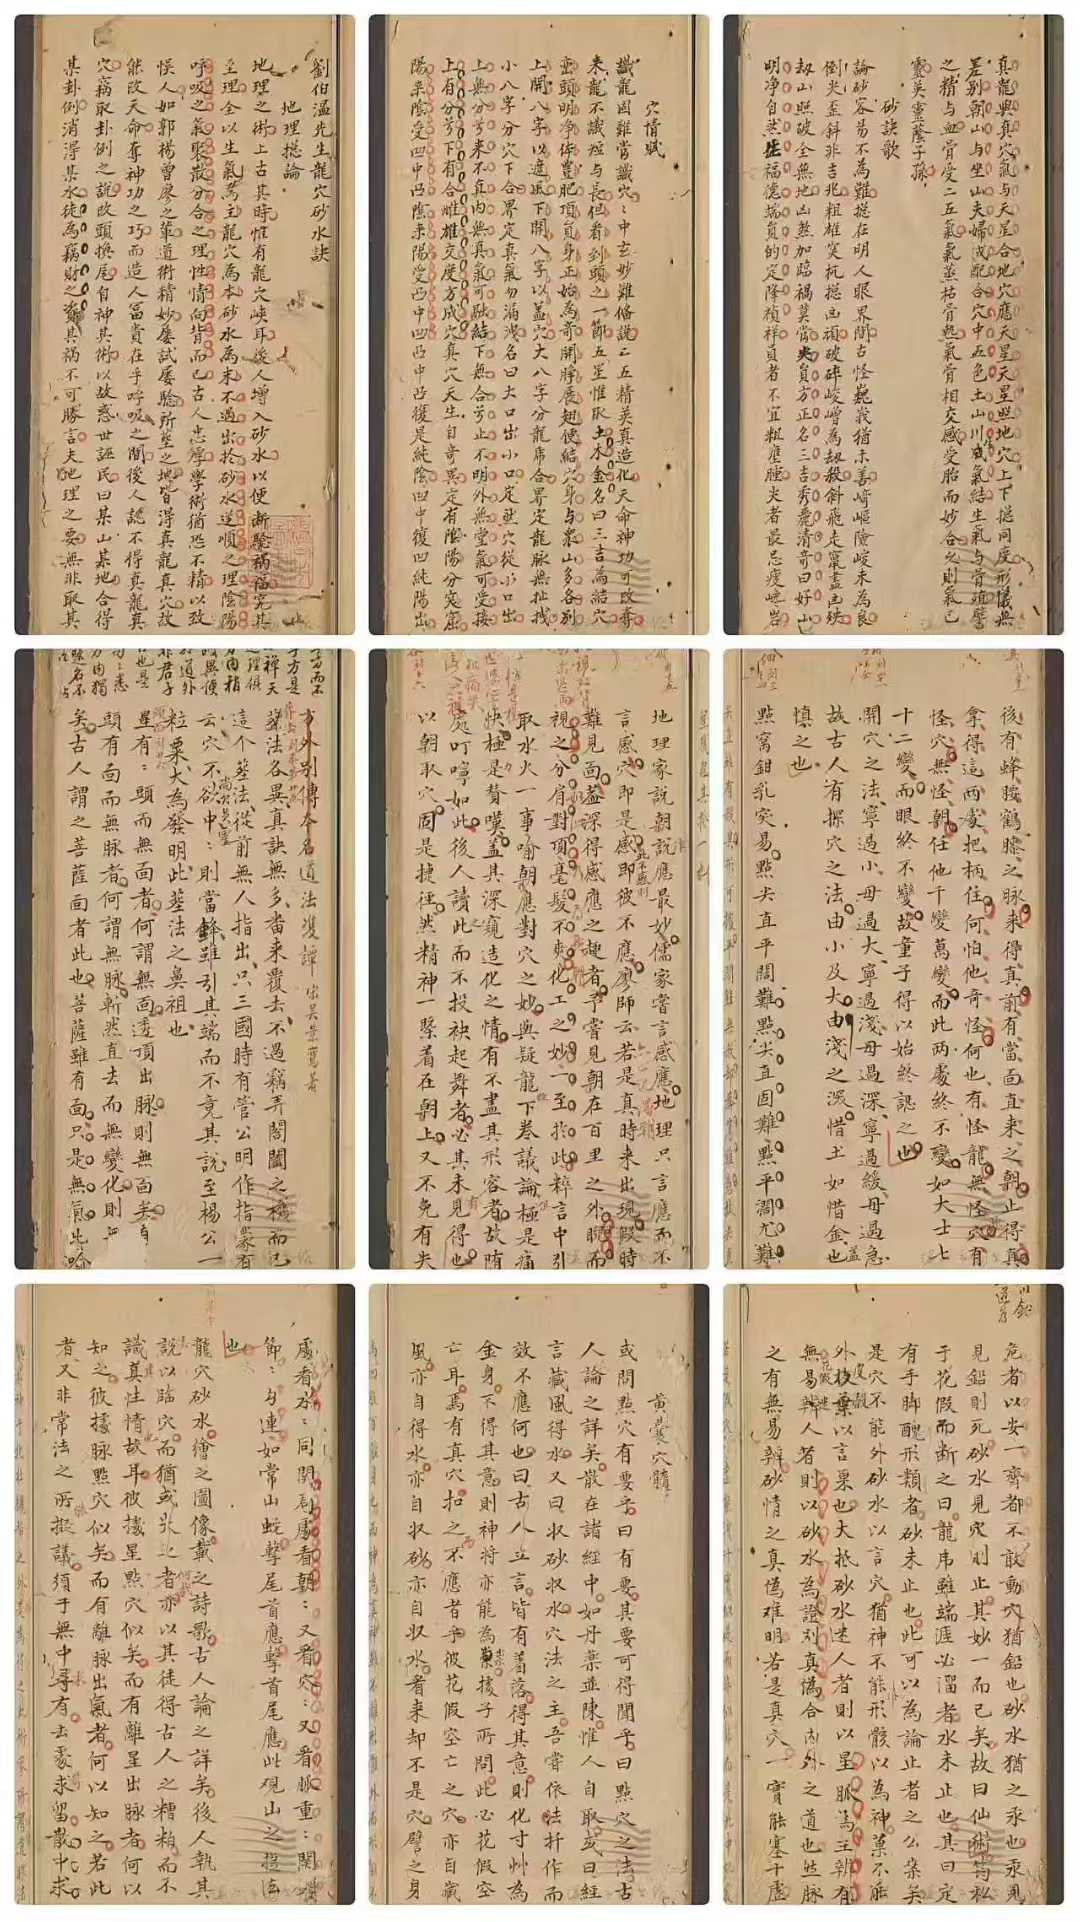 劉伯溫先生龍穴砂水訣
地理捴論
地理之術上古其時惟有龍穴峽耳後人增入砂水以便斷驗禍福究其
至理全以生氣為主龍穴為本砂水為末不過出於砂水逆順之理陰陽
呼吸之氣聚散分合之理性情向背而已古人忠厚學術猶恐不精以致
悞人如郭楊曾廖之輩道術精妙屢試屢驗所塟之地得真龍真穴故
能改天命奪神功之巧而造人富貴在乎呼吸之間後人認不得真龍真
穴竊取卦例之說改頭換尾自神其術以故惑世誣民曰某山某地合得
某卦例消得某水徒為竊財之其禍不可勝言夫地理之要無非取其
穴情賦
識龍固難當識穴穴中玄妙難俻說二五精英真造化天命神功可改奪
來龍不識短与長但看到頭之一節五星惟取土木金名曰三吉為結穴
巒頭明净体豊肥項貟身正始為奇開睜展翅便結穴身与眾山多各別
上開八字以遮風下開八字以蓋穴大八字分龍虎合界定龍脉無扯拽
小八字分穴下合界定真氣勿漏洩名曰大口出小口定然穴從小口出
上無分兮來不真內無真氣可融結下無合兮止不明外無堂氣可受接
上有分兮下有合雌雄交度方成穴真穴天生自竒異定有陰陽分窝窟
陽來陰受凹中凸陰來陽受凸中凹凸中凸復是純陰凹中復凹純陽出
真龍與真穴氣与天星合地穴應天星天星照地穴上下捴同度形儀無
差別朝山与坐山夫婦成配合穴中五色土山川感氣結生氣与骨殖譬
之精与血骨受二五氣氣蒸枯骨熱氣骨相交感受胎而妙合之則氣已
靈英靈蔭子孫
砂訣歌
論砂容易不為難捴在明人眼界間古怪巍峩猶未善﨑嶇險峻未為良
倒尖歪斜非吉兆粗雄突杬捴凶頑破碎峻嶒為刼殺斜飛走竄盡凶殃
刼山照破全無地凶煞加臨禍莫當尖貟方正名三吉秀麗清奇曰好山
明净自然生福德端貟的定降禎祥貟者不宜粗壅腫尖者最忌瘦巉岩
方外別傳本名道法双譚 宋吴景鸞著
塟法各異真訣無多畨來覆去不過竊弄闇闔之機而已
這个塟法從前無人指出只三國時有管公明作指蒙有
云穴不欲中中則當鋒雖引其端而不竟其說至楊公一
粒粟大為發明此塟法之鼻祖也
星有有頭而無面者何謂無面透頂出脉則無面矣有
頭有面而無脉者何謂無脉斬然直去而無變化則
矣古人謂之菩薩面者此也菩薩雖有面只是無氣此
地理家說朝說應最妙儒家嘗言感應地理只言應而不
言感穴即是感即彼不應廖師云若是真時来出現假時
難見面葢深得感應之趣者予嘗見朝在百里之外睨而
視之分肩對項毫髮不爽化工之妙一至於此粹言中引
取水火一事喻朝應對穴之妙與疑龍下卷議論極是痛
快極是賛嘆葢其深窺造化之情有不盡其形容者故陏
處叮嚀如此後人讀此而不投袂起舞者必其未見得也
以朝取穴固是捷徑然精神一緊着在朝上又不免有失
後有蜂腰鶴膝之脉來得真前有當面直来之朝止得真
拿得這兩處把柄住何怕他奇怪何也有怪龍無怪穴有
怪穴無怪朝任他千變萬變而此两處終不變如大士七
十二變而眼終不變故童子得以始終認之也
開穴之法寧過小毋過大寧過淺毋過深寧過緩毋過急
故古人有探穴之法由小及大由淺之深惜土如惜金也
慎之也
點窩鉗乳突易點尖直平闊難點尖直固難點平濶尤難
處看水水同関局處看朝朝又看穴穴又看脉重重関瑣
節節勾連如常山蛇擊尾首應擊首尾應此覌山之捴法
也
龍穴砂水繪之圖像載之詩歌古人論之詳矣後人執其
說以臨穴而猶或非之者亦以其徒得古人之糟粕而不
識真性情故耳彼據星點穴似矣而有離星出脉者何以
知之彼據脉點穴似矣而有離脉出氣者何以知之若此
者又非常法之所擬議須于無中尋有去處求留散中求
黄蘗穴髓
或問點穴有要乎曰有要其要可得聞乎曰點穴之法古
人論之詳矣散在諸經中如丹藥並陳惟人自取或曰經
言藏風得水又曰収砂収水穴法之主吾嘗依法扦作而
效不應何也曰古人立言皆有着落得其意則化寸艸為
金身不得其意則神將亦能為祟據子所問此必花假空
亡耳焉有真穴扣之不應者乎彼花假空亡之穴亦自藏
風亦自得水亦自収砂亦自収水看来却不是穴譬之身
危者以安一齊都不敢動穴猶鉛也砂水猶之汞也汞見
見鉛則死砂水見穴則止其妙一而已矣故曰仙術筠私
于花假而断之曰龍虎雖端涯必溜者水未止也其曰定
有手脚醜形類者砂未止也此可以為論止者之公案矣
是穴不能外砂水以言穴猶神不能形骸以為神菓不能
外枝葉以言菓也大抵砂水迷人者則以星脈為主辨有
無易辨人者則以砂水為證別真偽合內外之道也然脉
之有無易辨砂情之真偽难明若是真穴一實能塞千虛